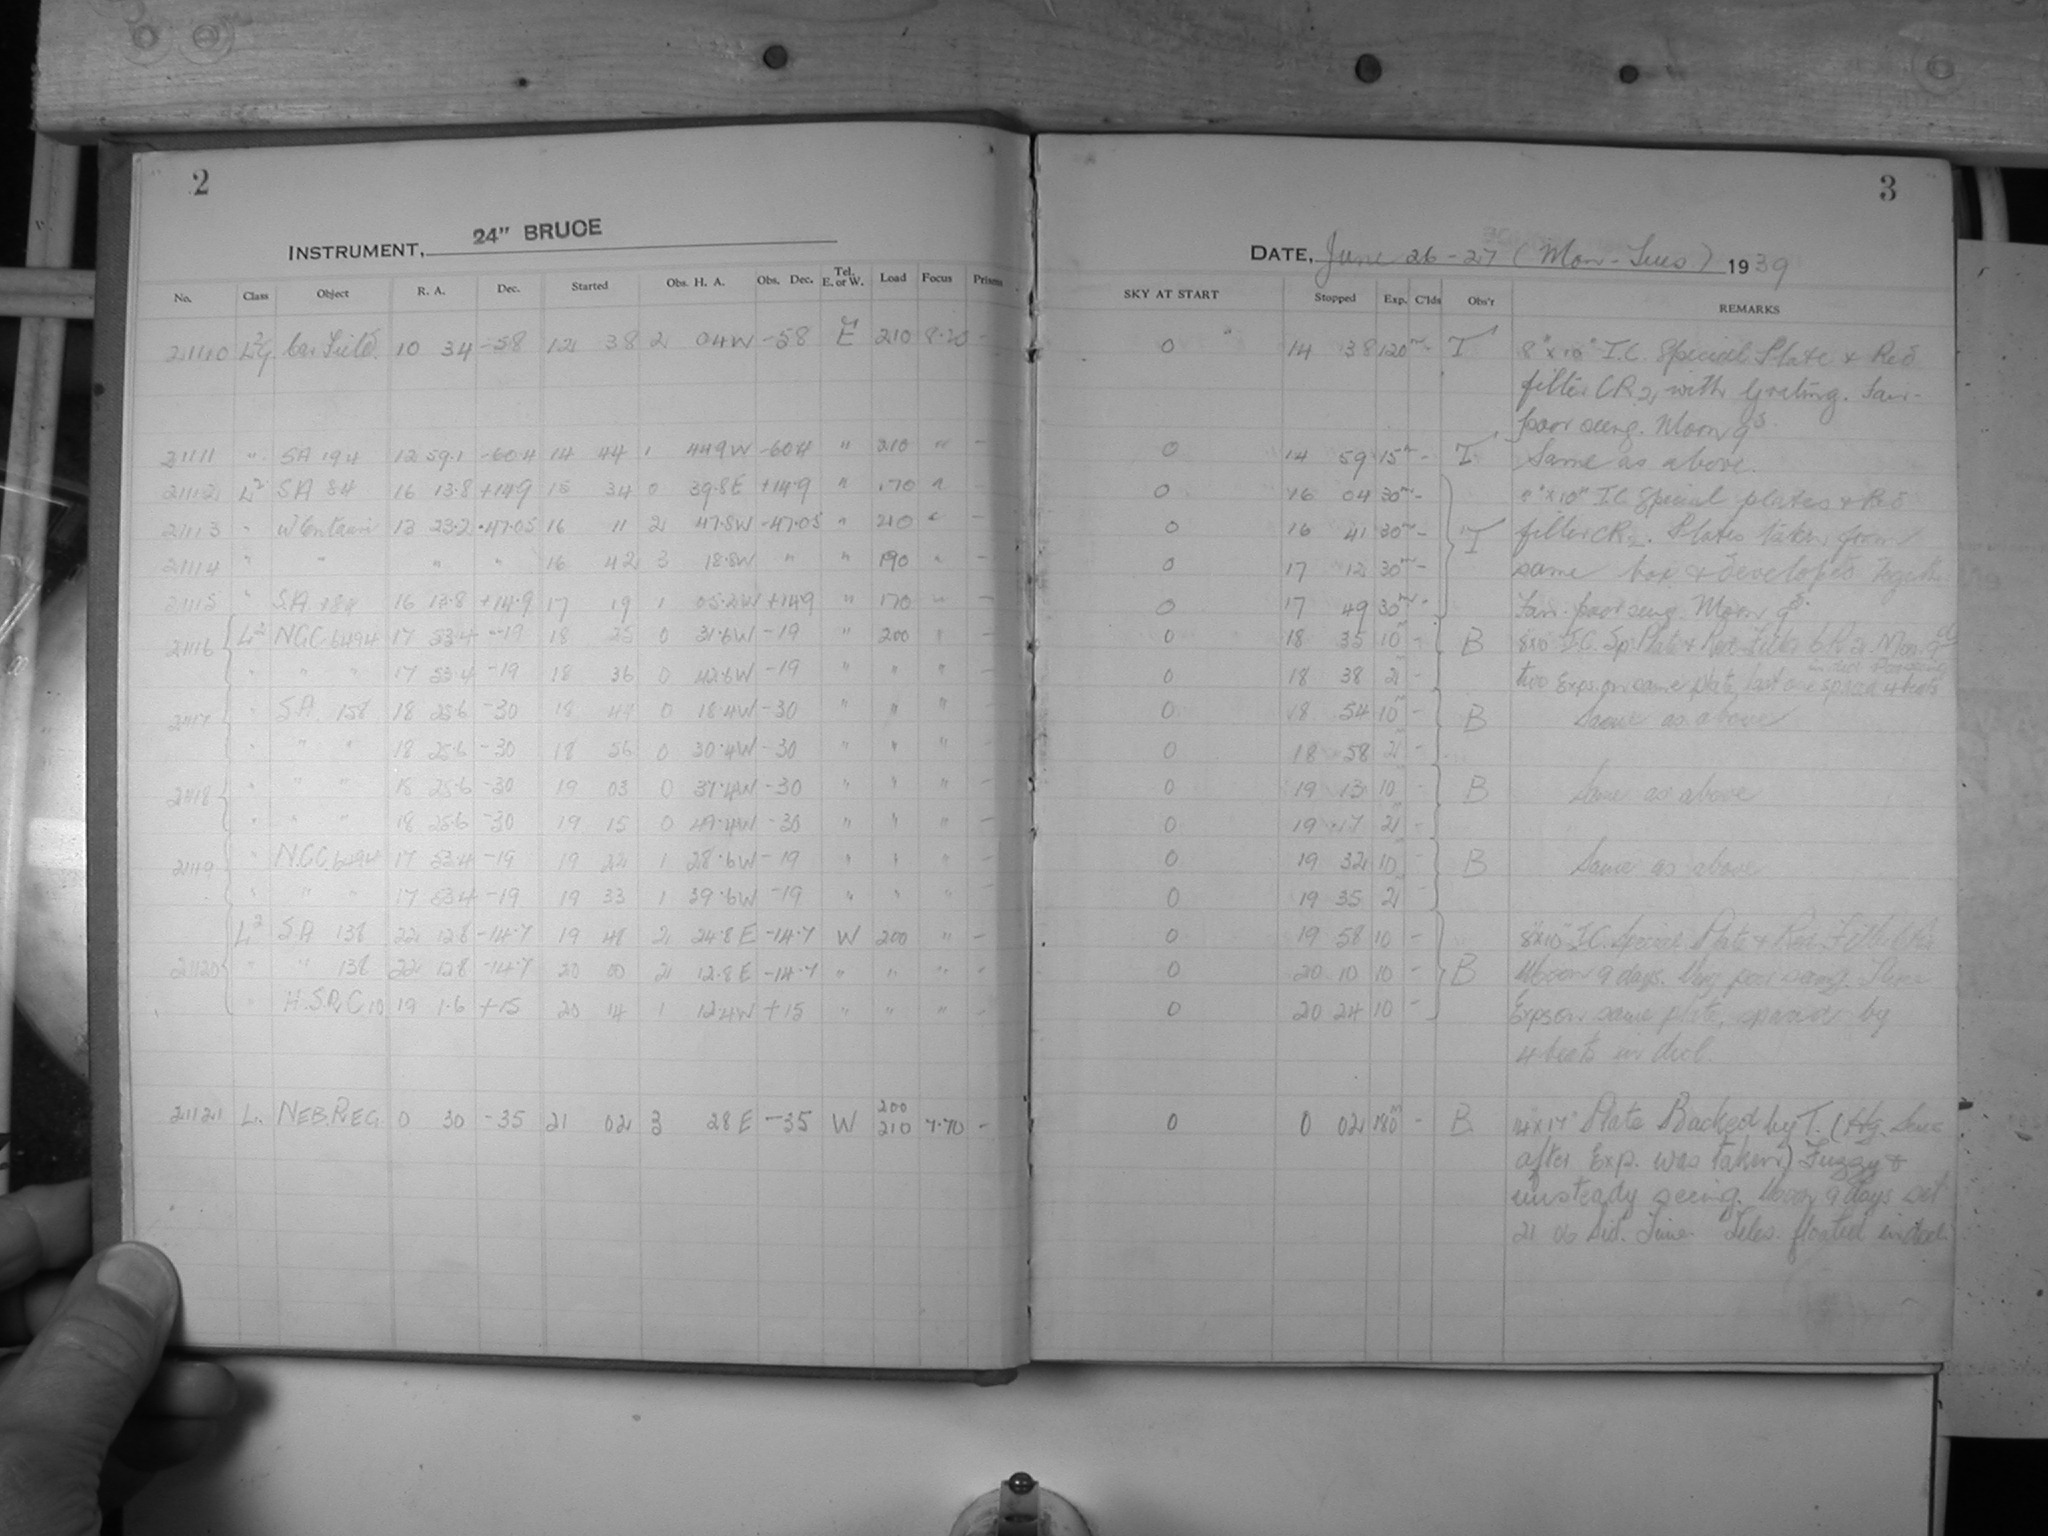 2
24" BRUCE
INSTRUMENT,
No. Class Object R. A. Dec. Started Obs. H. A. Obs. Dec. Tel. E. or W. Load Focus Prisms
21110 Car Field 10 34 -58 12 38 2 04W -58 E 210 8.20 -
21111 " SA 194 12 59.1 -60.4 14 44 1 44.9W -60.4 " 210 " -
21112 L² SA 84 16 13.8 +14.9 15 34 0 39.8E +14.9 " 170 " -
21113 " ω Centauri 13 23.2 -47.05 16 11 2 47.8W -47.05 " 210 " -
21114 " " " " 16 42 3 18.8W " " 190 " -
21115 " SA 16 13.8 +14.9 17 19 1 05.2W +14.9 " 170 " -
21116 L² NGC 6494 17 53.4 -19 18 25 0 31.6W -19 " 200 " -
" " " 17 53.4 -19 18 36 0 42.6W -19 " " " -
21117 " SA 158 18 25.6 -30 18 44 0 18.4W -30 " " " -
" " " 18 25.6 -30 18 56 0 30.4W -30 " " " -
21118 " " " 18 25.6 -30 19 03 0 37.4W -30 " " " -
" " " 18 25.6 -30 19 15 0 49.4W -30 " " " -
21119 " NGC 6494 17 53.4 -19 19 22 1 28.6W -19 " " " -
" " " 17 53.4 -19 19 33 1 39.6W -19 " " " -
L² SA 138 22 12.8 -14.7 19 48 2 24.8E -14.7 W 200 " -
21120 " " 138 22 12.8 -14.7 20 00 2 12.8E -14.7 " " " -
" H.S.P.C 10 19 1.6 +15 20 14 1 12.4W +15 " " " -
200
21121 L. NEB.REG. 0 30 -35 21 02 3 28 E -35 W 210 7.70 -
3
DATE, June 26-27 (Mon-Tues) 1939
SKY AT START Stopped Exp. C'lds Obs'r REMARKS
0 14 38 120m - T 8"x10" I.C. Special Plate & Red
filter CR2, with Grating. Fair-
poor seeing. Moon 9d
0 14 59 15m - T Same as above.
0 16 04 30m - 8"x10" I.C. Special plates & Red
0 16 41 30m - T filter CR2. Plates taken from
0 17 12 30m - same box & developed together
0 17 49 30m - Fair-poor seeing. Moon 9d.
0 18 35 10m - B 8x10 I.C. Sp Plate & Red Filter CR2. Moon 9d
0 18 38 2m - two Exps on same plate, last one spaced 4 beats
0 18 54 10m - B Same as above
0 18 58 2m -
0 19 13 10m - B Same as above
0 19 17 2m -
0 19 32 10m - B Same as above
0 19 35 2m -
0 19 58 10 - 8"x10" I.C. Special Plate & Red Filter CR2
0 20 10 10 - B Moon 9 days. Very poor seeing. Three
0 20 24 10 - Exps on same plate, spaced by
4 beats in decl.
0 0 02 180m - B 14"x17" Plate Backed by T. (Hg. Sens
after Exp. was taken) Fuzzy &
unsteady seeing. Moon 9 days set
21 06 Sid. Time. Teles. floated in decl.